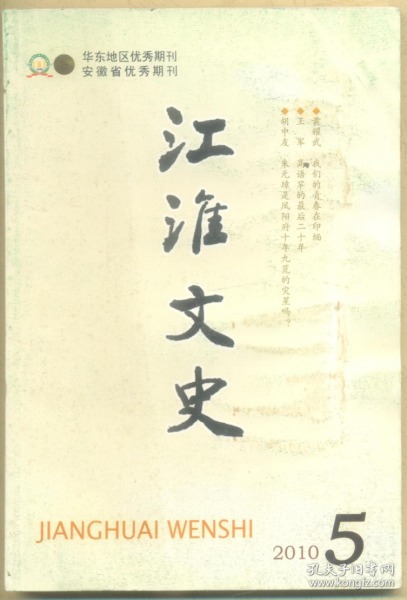 华东地区优秀期刊
安徽省优秀期刊
江淮文史
◆黄耀武 我们的青春在印缅
◆王军 高语罕的最后二十年
◆胡中友 朱元璋是凤阳府十年九荒的灾星吗？
JIANGHUAI WENSHI
2010 5
孔夫子旧书网